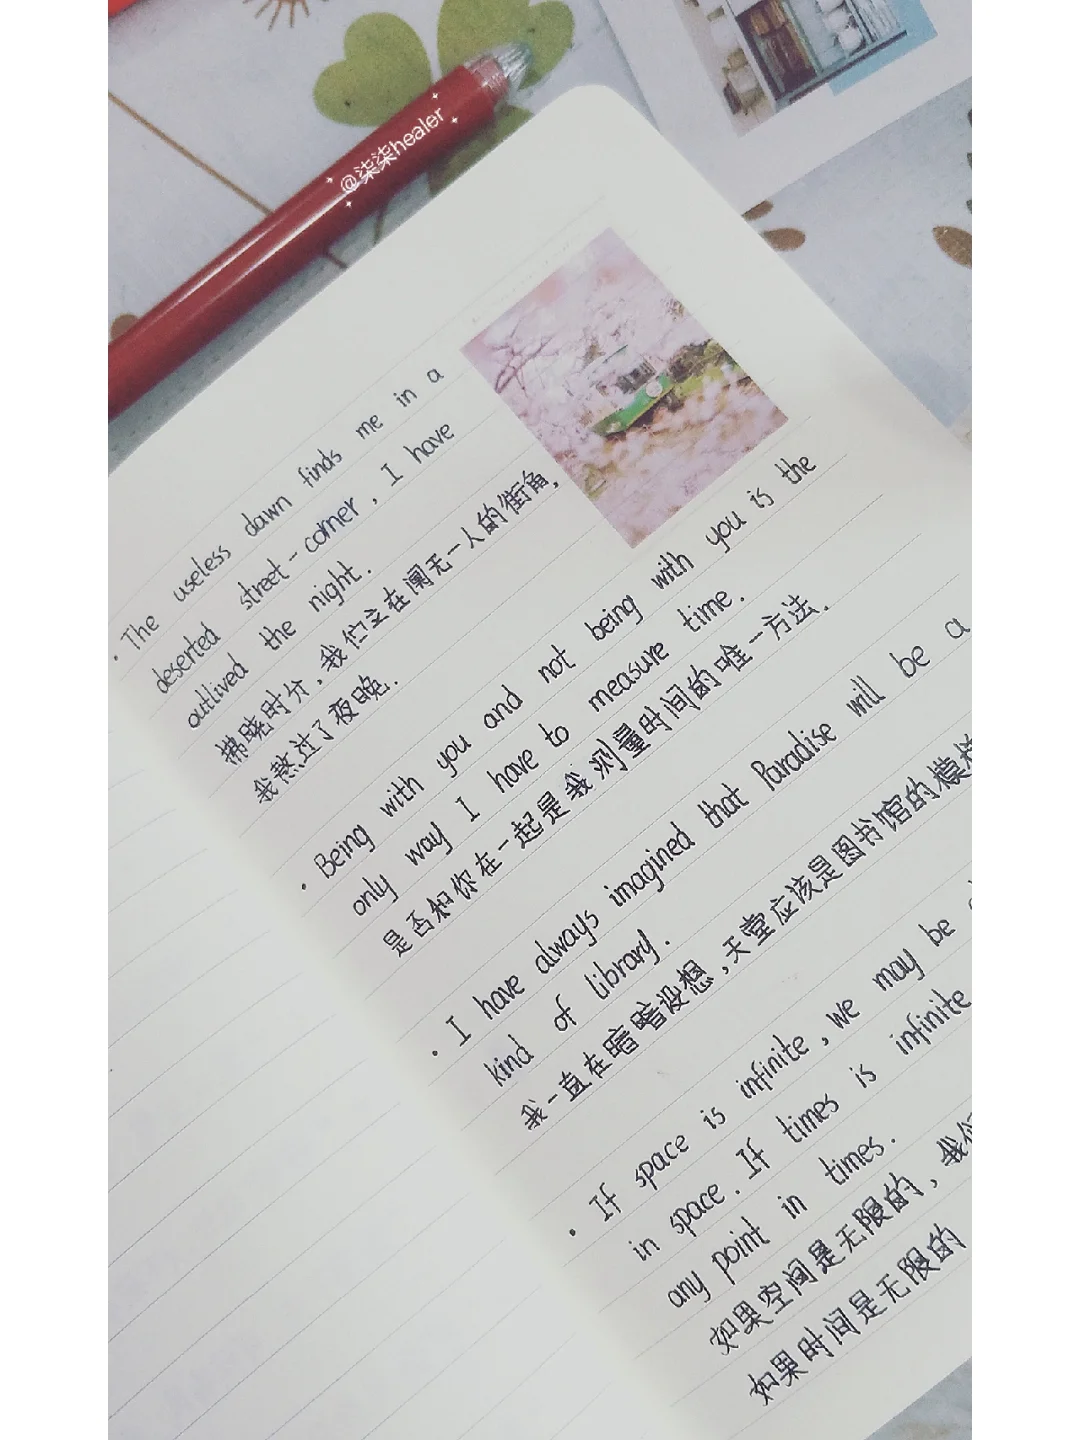 @柒柒healer
· The useless dawn finds me in a
deserted street-corner, I have
outlived the night.
拂晓时分,我们立在阒无一人的街角,
我熬过了夜晚.
· Being with you and not being with you is the
only way I have to measure time.
是否和你在一起是我测量时间的唯一方法.
· I have always imagined that Paradise will be a
kind of library.
我一直在暗暗设想,天堂应该是图书馆的模样
· If space is infinite, we may be
in space. If times is infinite
any point in times.
如果空间是无限的,我们
如果时间是无限的